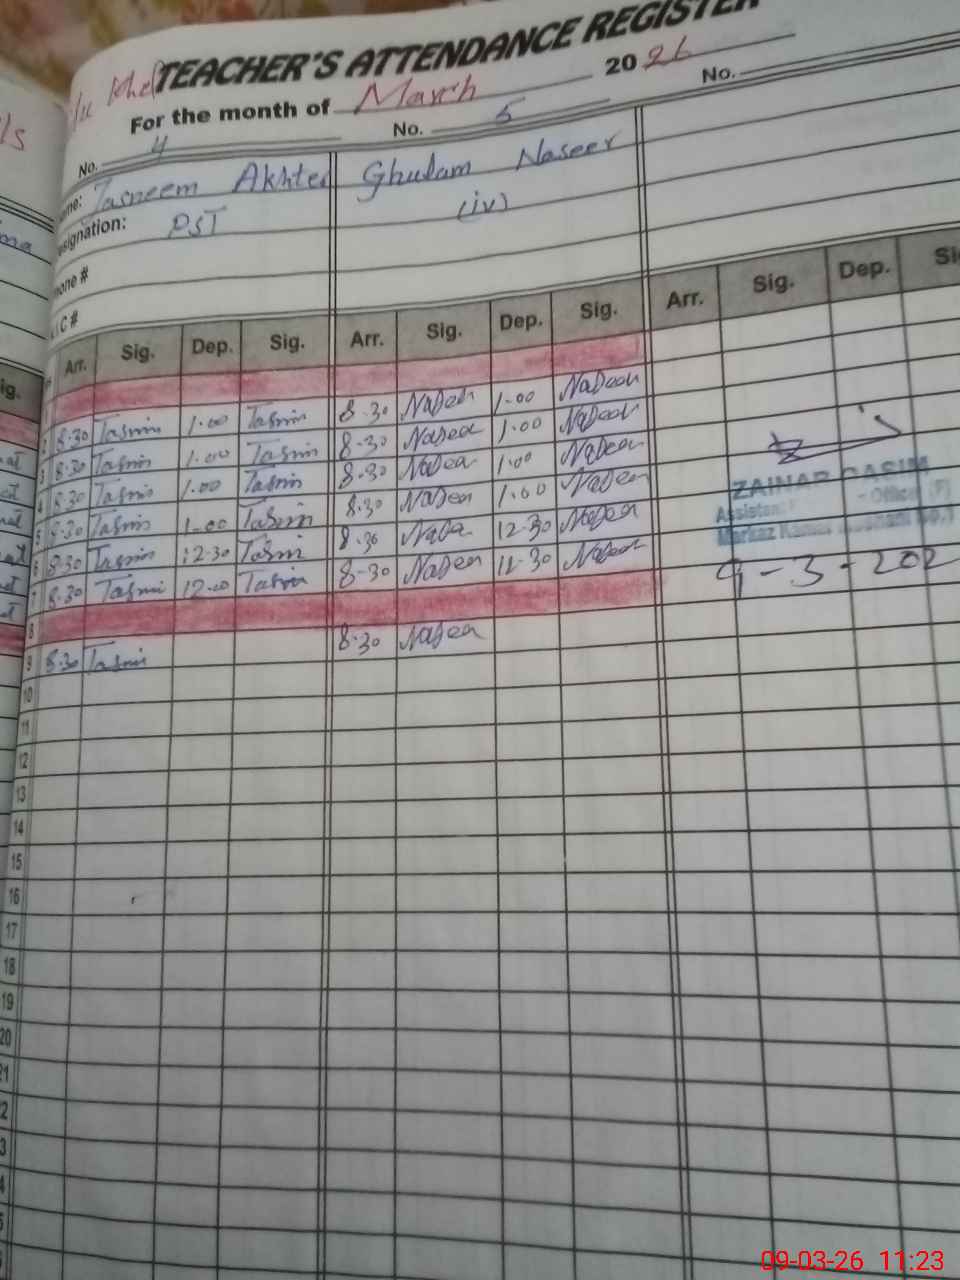 TEACHER'S ATTENDANCE REGISTER
For the month of March 2026
No. 4 No. 5 No.
Tasneem Akhter Ghulam Naseer
esignation: PST (iv)
hone #
I C #
ig. Arr. Sig. Dep. Sig. Arr. Sig. Dep. Sig. Arr. Sig. Dep. Si
1
2 8.30 Tasmin 1.00 Tasmin 8.30 Naseer 1.00 Naseer
3 8.30 Tasmin 1.00 Tasmin 8.30 Naseer 1.00 Naseer
4 8.30 Tasmin 1.00 Tasmin 8.30 Naseer 1.00 Naseer
5 8.30 Tasmin 1.00 Tasmin 8.30 Naseer 1.00 Naseer
6 8.30 Tasmin 12.30 Tasmin 8.30 Naseer 12.30 Naseer
7 8.30 Tasmin 12.00 Tasmin 8-30 Naseer 11.30 Naseer
8
9 8.30 Tasmin 8.30 Naseer
ZAINAB QASIM
Assistant - Officer (F)
Markaz No.1
9-3-202
10
11
12
13
14
15
16
17
18
19
20
21
2
3
4
5
09-03-26 11:23